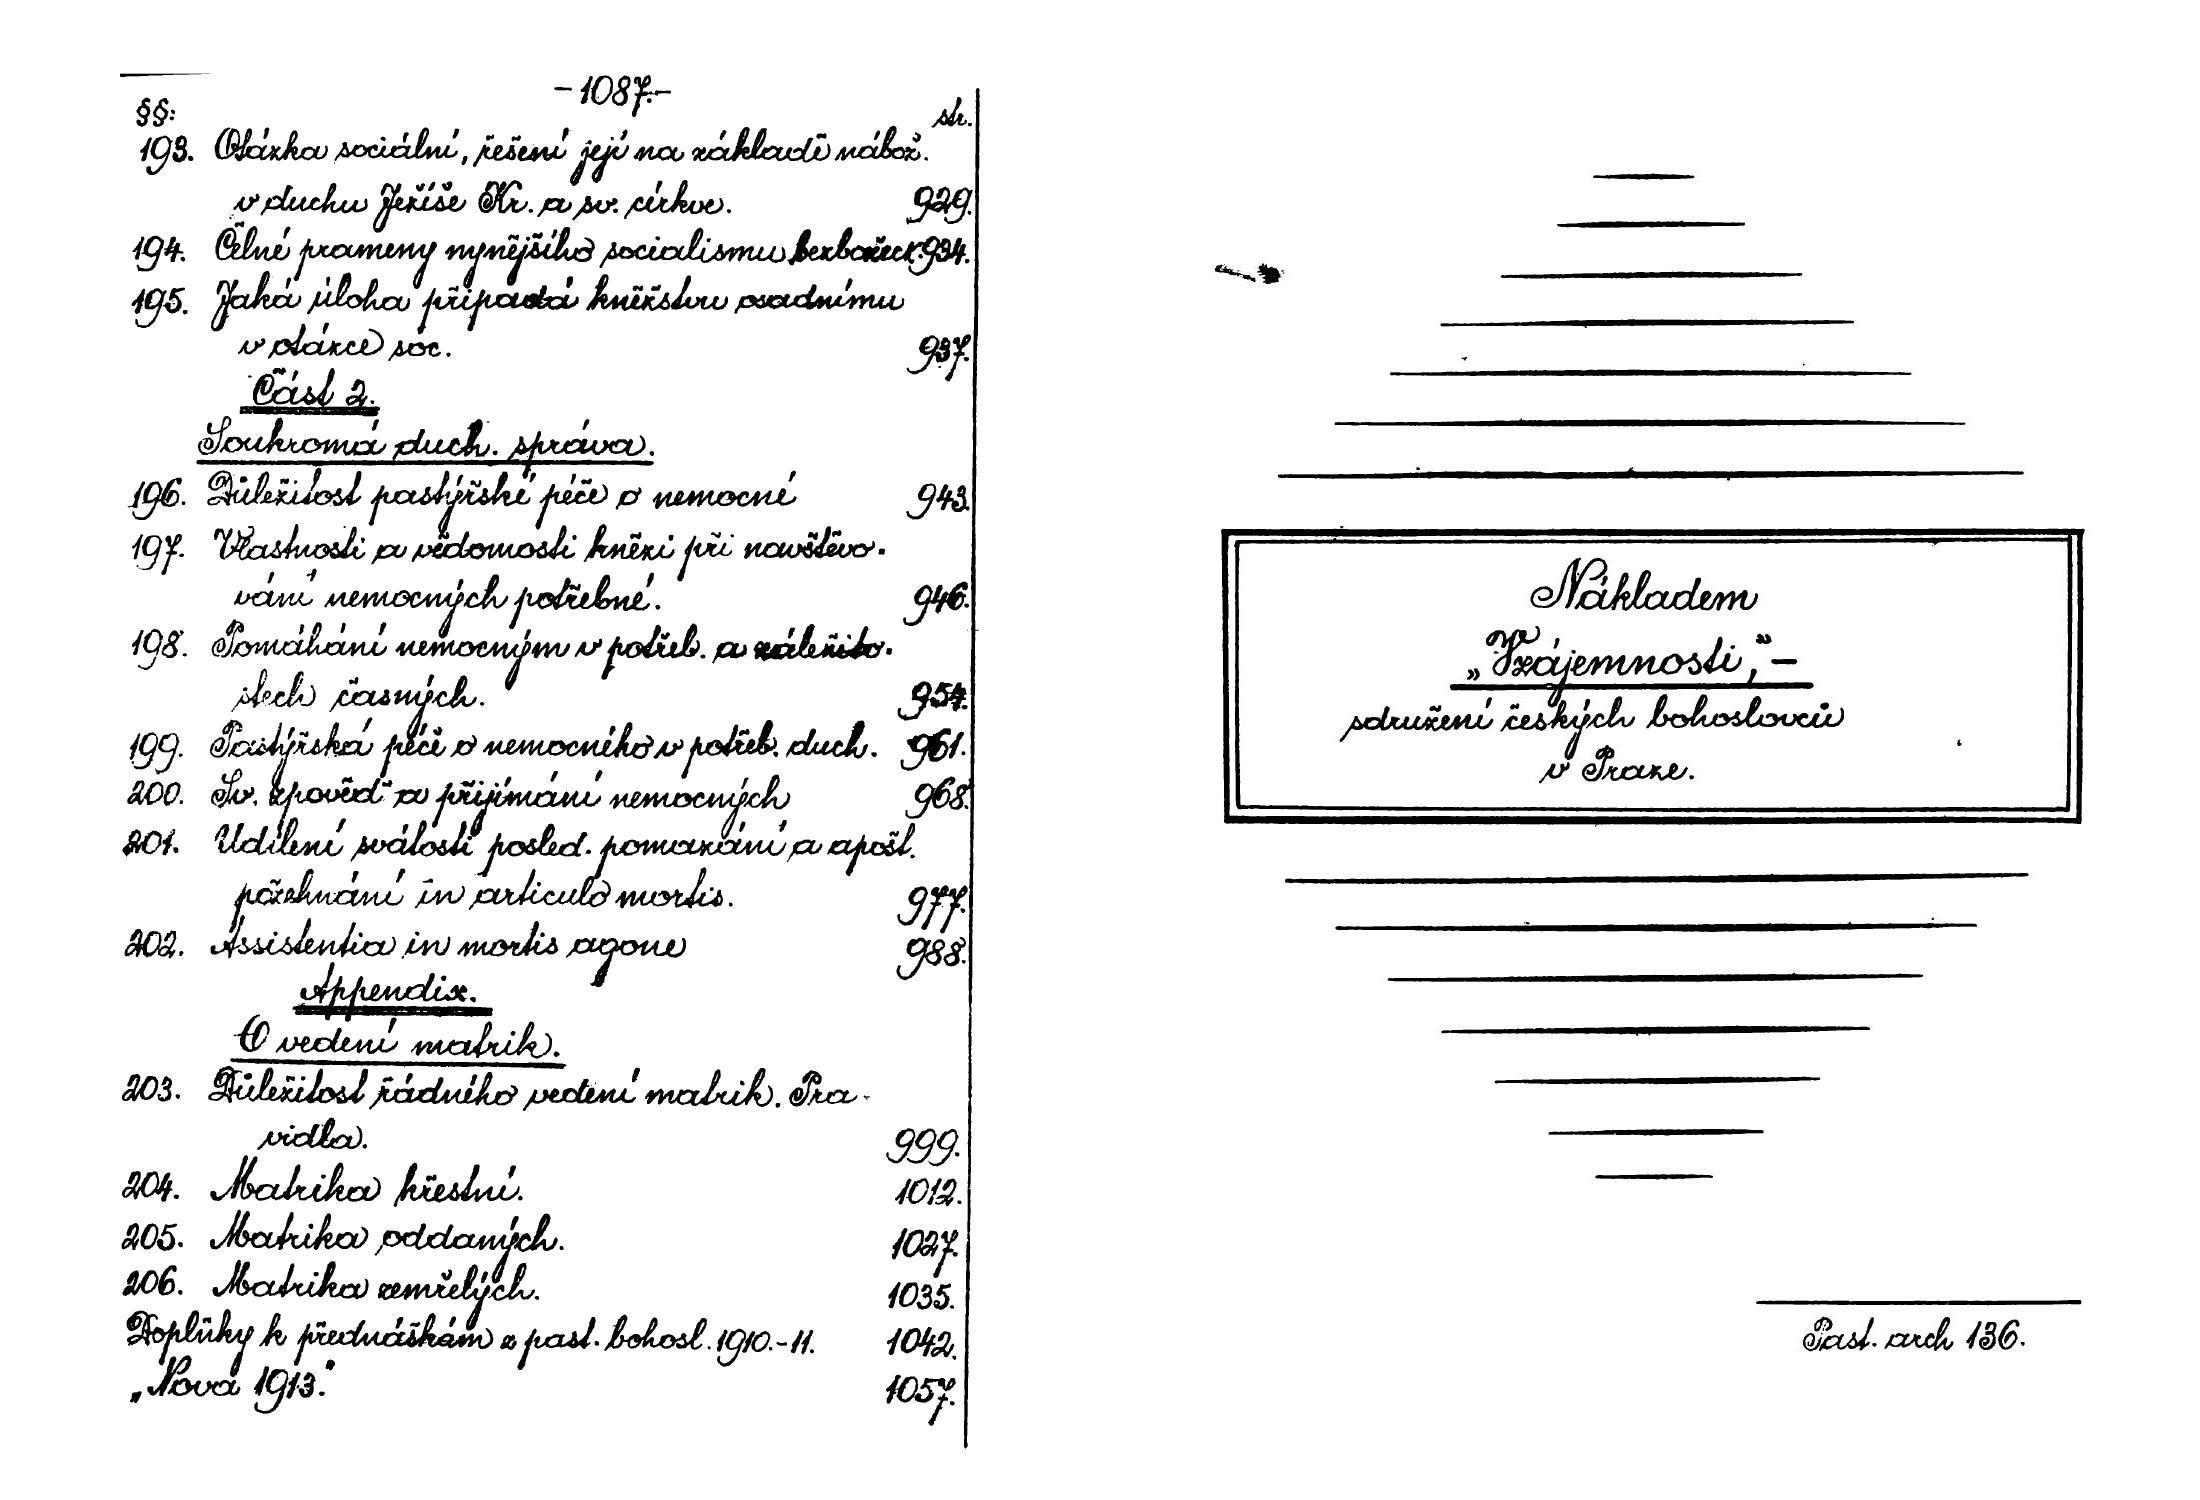 -1087.-
§§: str.
193. Otázka sociální, řešení její na základě nábož.
v duchu Ježíše Kr. a sv. církve. 929.
194. Čelné prameny nynějšího socialismu bezbožeck. 934.
195. Jaká úloha připadá kněžstvu osadnímu
v otázce soc. 937.
Část 2.
Soukromá duch. správa.
196. Důležitost pastýřské péče o nemocné 943.
197. Vlastnosti a vědomosti knězi při navštěvo-
vání nemocných potřebné. 946.
198. Pomáhání nemocným v potřeb. a záležito-
stech časných. 954.
199. Pastýřská péče o nemocného v potřeb. duch. 961.
200. Sv. zpověď a přijímání nemocných 968.
201. Udílení svátosti posled. pomazání a apošt.
požehnání in articulo mortis. 977.
202. Assistentia in mortis agone 988.
Appendix.
O vedení matrik.
203. Důležitost řádného vedení matrik. Pra-
vidla. 999.
204. Matrika křestní. 1012.
205. Matrika oddaných. 1027.
206. Matrika zemřelých. 1035.
Doplňky k přednáškám z past. bohosl. 1910.-11. 1042.
„Nova 1913." 1057.
Nákladem
„Vzájemnosti,"-
sdružení českých bohoslovců
v Praze.
Past. arch 136.